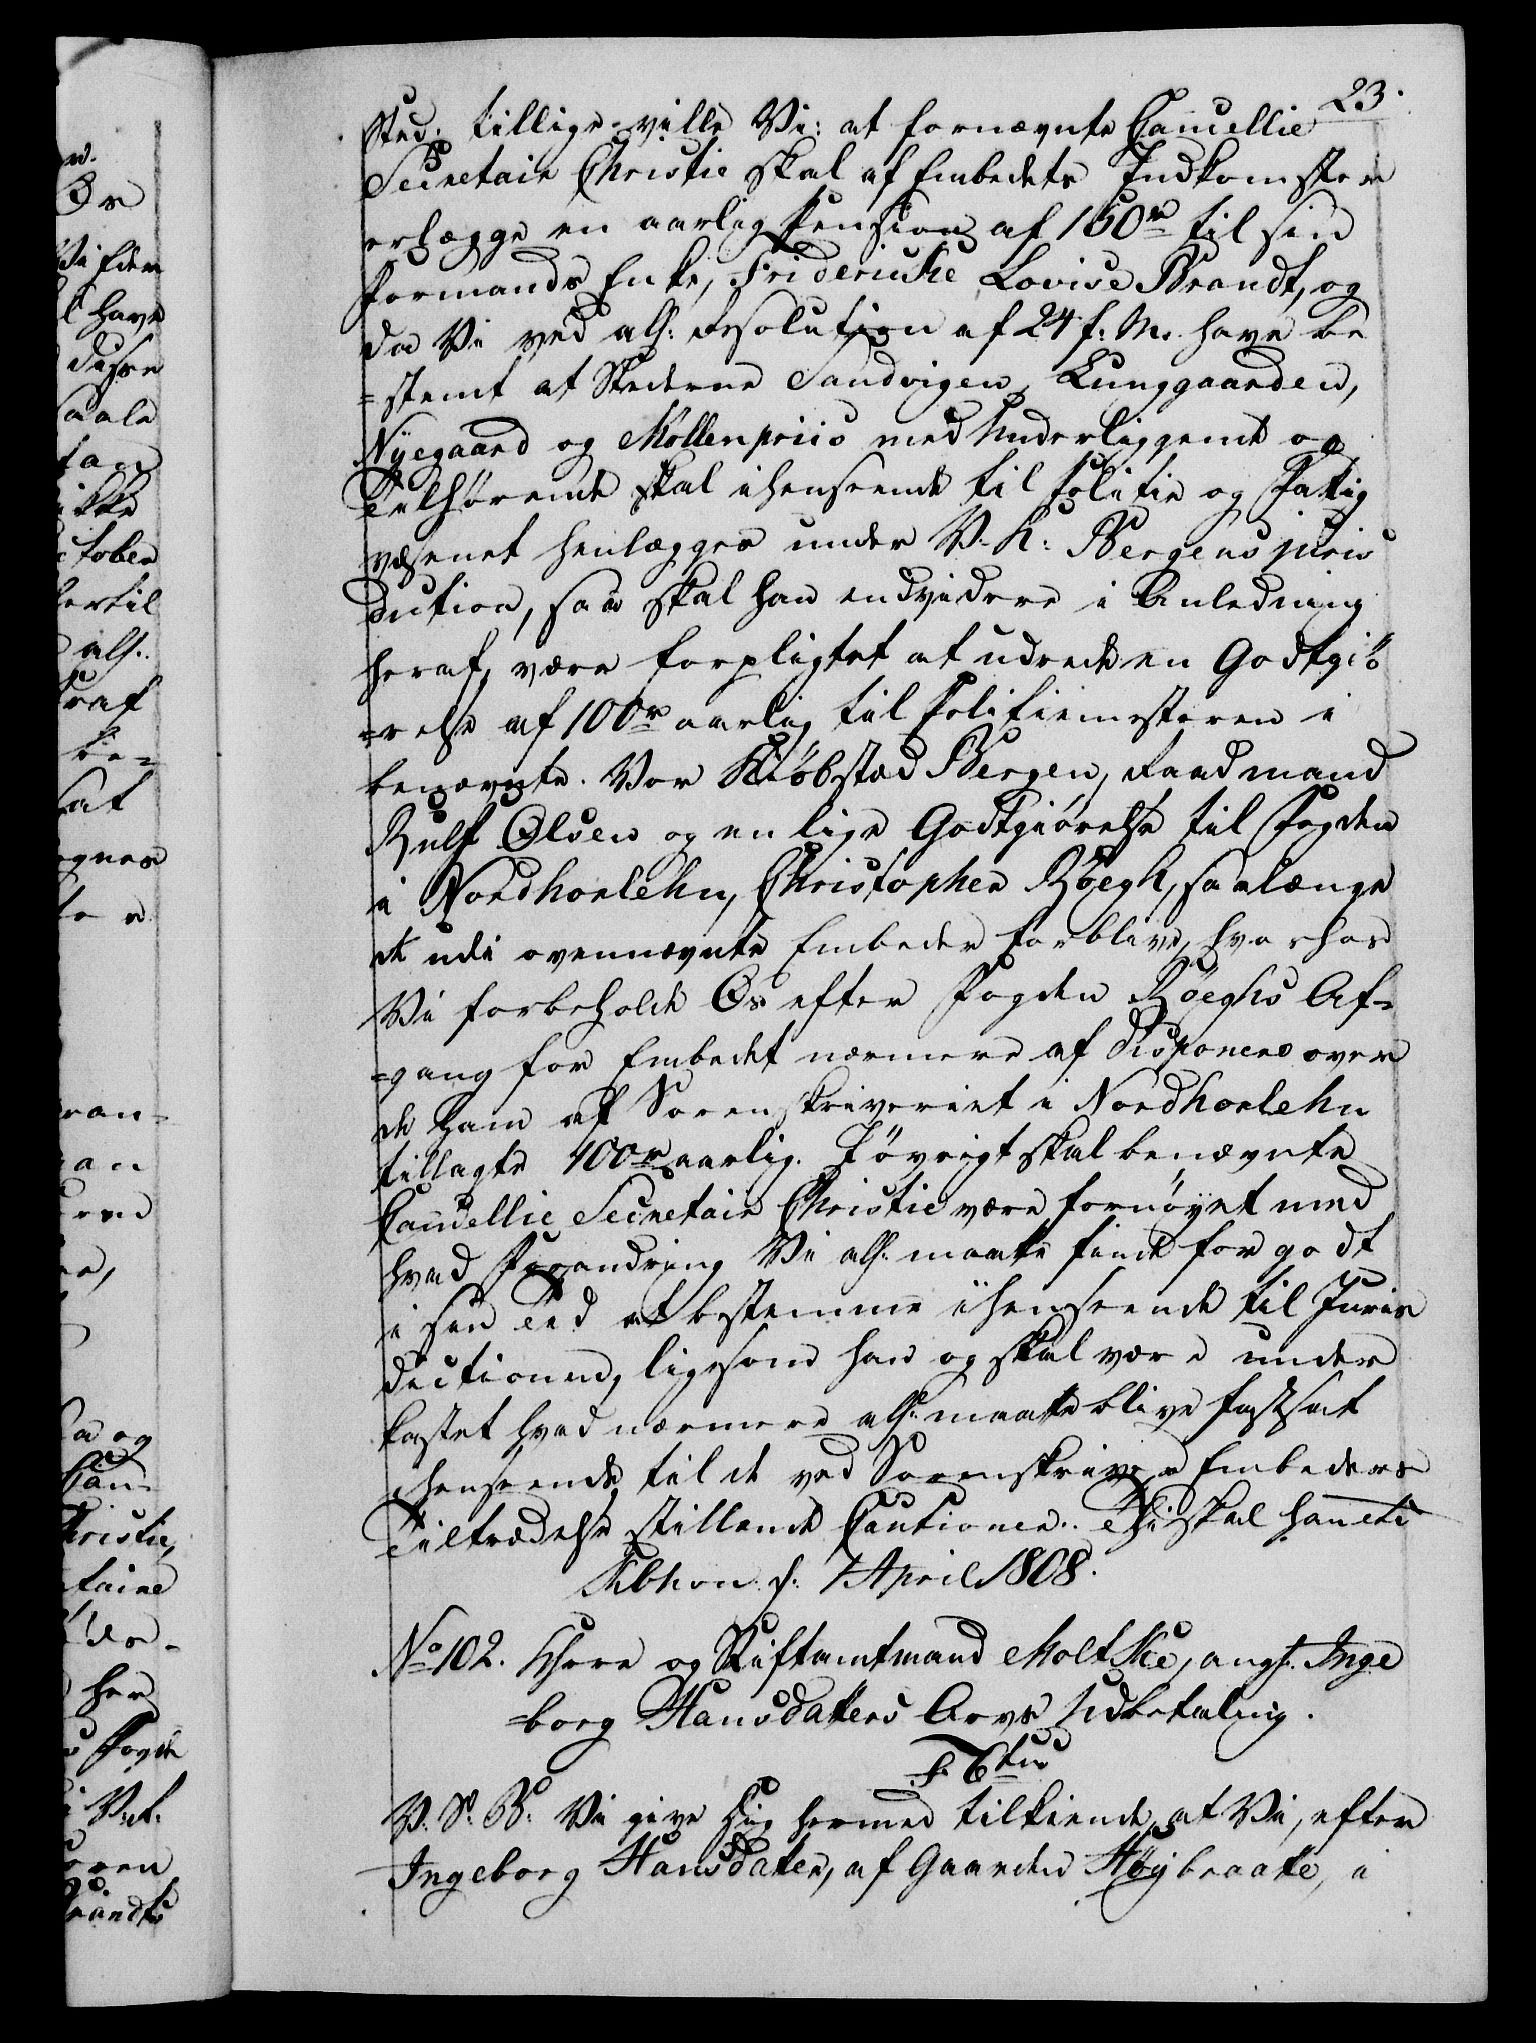 23.
Sted; tillige ville Vi: at fornævnte Cancellie
Secretair Christie skal af Embedets Indkomster
erlægge en aarlig Pension af 150 r til sin
Formands Enke, Fridericke Lovise Brandt, og
da Vi ved alh: Resolution af 24 f: M. have be
=stemt at Stederne Sandvigen, Lunggaarden,
Nyegaard og Møllenpriis med Underliggende og
Tilhørende skal ihenseende til Politie og Fattig
væsenet henlægges under V. K: Bergens juris
diction, saa skal han endvidere i Anledning
heraf, være forpligtet at udrede en Godtgiö
=relse af 100 r aarlig til Politiemesteren i
benævnte Vor Kiöbstad Bergen, Raadmand
Rulf Olsen og en lige Godtgiörelse til Fogden
i Nordhorlehn, Christopher Röegh, saalænge
de udi ovennævnte Embeder forblive, hvorhos
Vi forbeholde Os efter Fogden Röeghs Af=
=gang for Embedet nærmere at disponere over
de ham af Sorenskriveriet i Nordhorlehn
tillagte 400 r aarlig. Iövrigt skal benævnte
Cancellie Secretair Christie være fornöyet med
hvad Forandring Vi alh: maatte finde for godt
i sin Tid at bestemme ihenseende til Juris
dictionen, ligesom han og skal være under
kastet hvad nærmere alh: maatte blive fastsat
ihenseende til de ved Sorenskriver Embeders
Tiltrædelse stillende Cautioner. Thi skal han etc
Kbhvn d: 1 April 1808.
No 102. Hr og Stiftamtmand Moltke, angl. Inge
=borg Hansdatters Arvs Udbetaling.
F. 6tus
V. S. B: Vi give Dig hermed tilkiende, at Vi, efter
Ingeborg Hansdatter, af Gaarden Höybraate, i